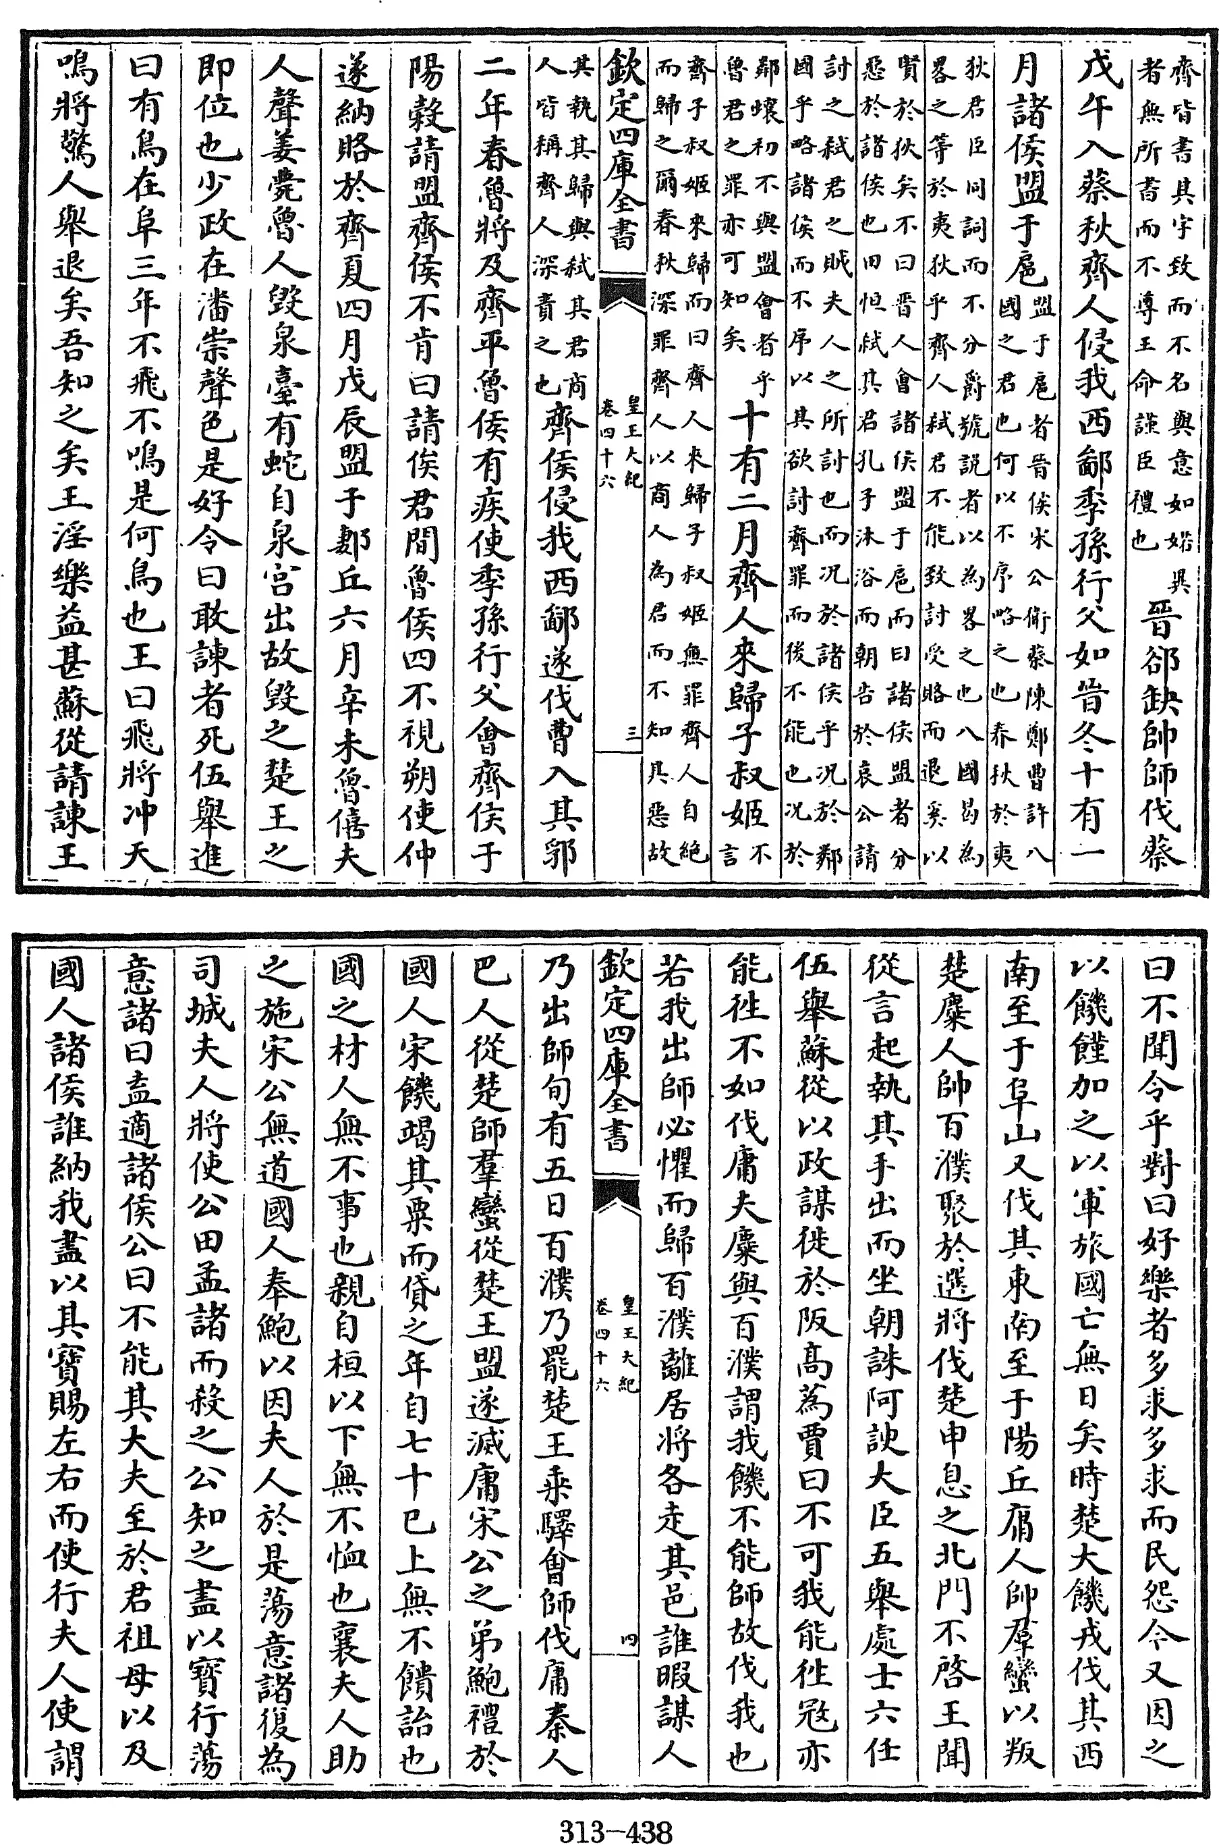 齊皆書其字致而不名與意如婼異
者無所書而不尊王命謹臣禮也
晉郤缺帥師伐蔡
戊午入蔡秋齊人侵我西鄙季孫行父如晉冬十有一
月諸侯盟于扈
盟于扈者晉侯宋公衛蔡陳鄭曹許八
國之君也何以不序略之也春秋於夷
狄君臣同詞而不分爵號説者以為畧之也八國曷為
畧之等於夷狄乎齊人弑君不能致討受賂而退奚以
賢於狄矣不曰晉人會諸侯盟于扈而曰諸侯盟者分
惡於諸侯也田恒弑其君孔子沐浴而朝告於哀公請
討之弑君之賊夫人之所討也而况於諸侯乎况於鄰
國乎略諸侯而不序以其欲討齊罪而後不能也况於
鄰壤初不與盟會者乎
魯君之罪亦可知矣
十有二月齊人來歸子叔姬
不
言
齊子叔姬來歸而曰齊人來歸子叔姬無罪齊人自絶
而歸之爾春秋深罪齊人以商人為君而不知其惡故
欽定四庫全書
皇王大紀
卷四十六
三
其執其歸與弑其君商
人皆稱齊人深責之也
齊侯侵我西鄙遂伐曹入其郛
二年春魯將及齊平魯侯有疾使季孫行父會齊侯于
陽穀請盟齊侯不肯曰請俟君間魯侯四不視朔使仲
遂納賂於齊夏四月戊辰盟于郪丘六月辛未魯僖夫
人聲姜薨魯人毁泉臺有蛇自泉宫出故毁之楚王之
即位也少政在潘崇聲色是好令曰敢諫者死伍舉進
曰有鳥在阜三年不飛不鳴是何鳥也王曰飛將冲天
鳴將驚人舉退矣吾知之矣王淫樂益甚蘇從請諫王
曰不聞令乎對曰好樂者多求多求而民怨令又因之
以饑饉加之以軍旅國亡無日矣時楚大饑戎伐其西
南至于阜山又伐其東南至于陽丘庸人帥羣蠻以叛
楚麇人帥百濮聚於選將伐楚申息之北門不啓王聞
從言起執其手出而坐朝誅阿諛大臣五舉處士六任
伍舉蘇從以政謀徙於阪高蒍賈曰不可我能徃冦亦
能徃不如伐庸夫麇與百濮謂我饑不能師故伐我也
若我出師必懼而歸百濮離居將各走其邑誰暇謀人
欽定四庫全書
皇王大紀
卷四十六
四
乃出師旬有五日百濮乃罷楚王乘驛會師伐庸秦人
巴人從楚師羣蠻從楚王盟遂滅庸宋公之弟鮑禮於
國人宋饑竭其粟而貸之年自七十已上無不饋詒也
國之材人無不事也親自桓以下無不恤也襄夫人助
之施宋公無道國人奉鮑以因夫人於是蕩意諸復為
司城夫人將使公田孟諸而殺之公知之盡以寶行蕩
意諸曰盍適諸侯公曰不能其大夫至於君祖母以及
國人諸侯誰納我盡以其寶賜左右而使行夫人使謂
313-438